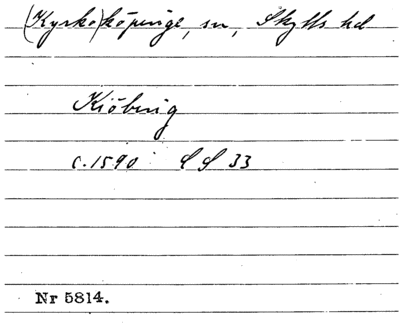 (Kyrko)köpinge, sn, Skytts hd
Kiöbing
c. 1590 L L 33
Nr 5814.